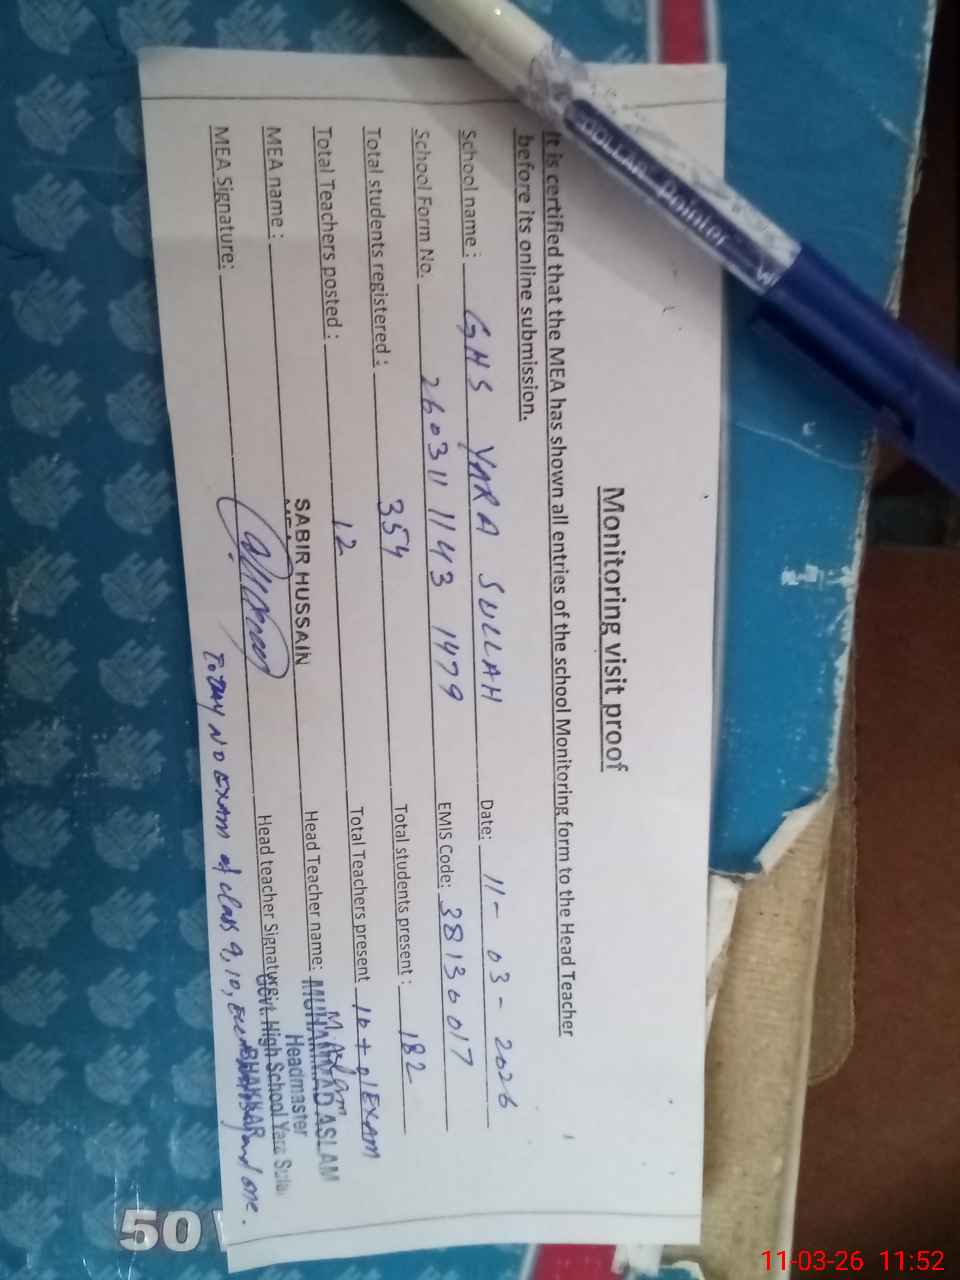 Monitoring visit proof
It is certified that the MEA has shown all entries of the school Monitoring form to the Head Teacher
before its online submission.
School name : GHS YARA SULLAH Date: 11-03-2026
School Form No. 260311 1143 1479 EMIS Code: 38130017
Total students registered : 354 Total students present : 182
Total Teachers posted : 12 Total Teachers present 10+01EXAM
MEA name : SABIR HUSSAIN Head Teacher name: M. Aslam
MUHAMMAD ASLAM
Headmaster
MEA Signature: Head teacher Signature:
Govt. High School Yara Sulla
BHAKKAR
TODAY NO EXAM of class 9, 10, and one.
DOLLAR Pointer
50
11-03-26 11:52